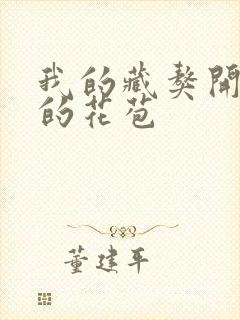 我的藏獒開
的花苞
董建平